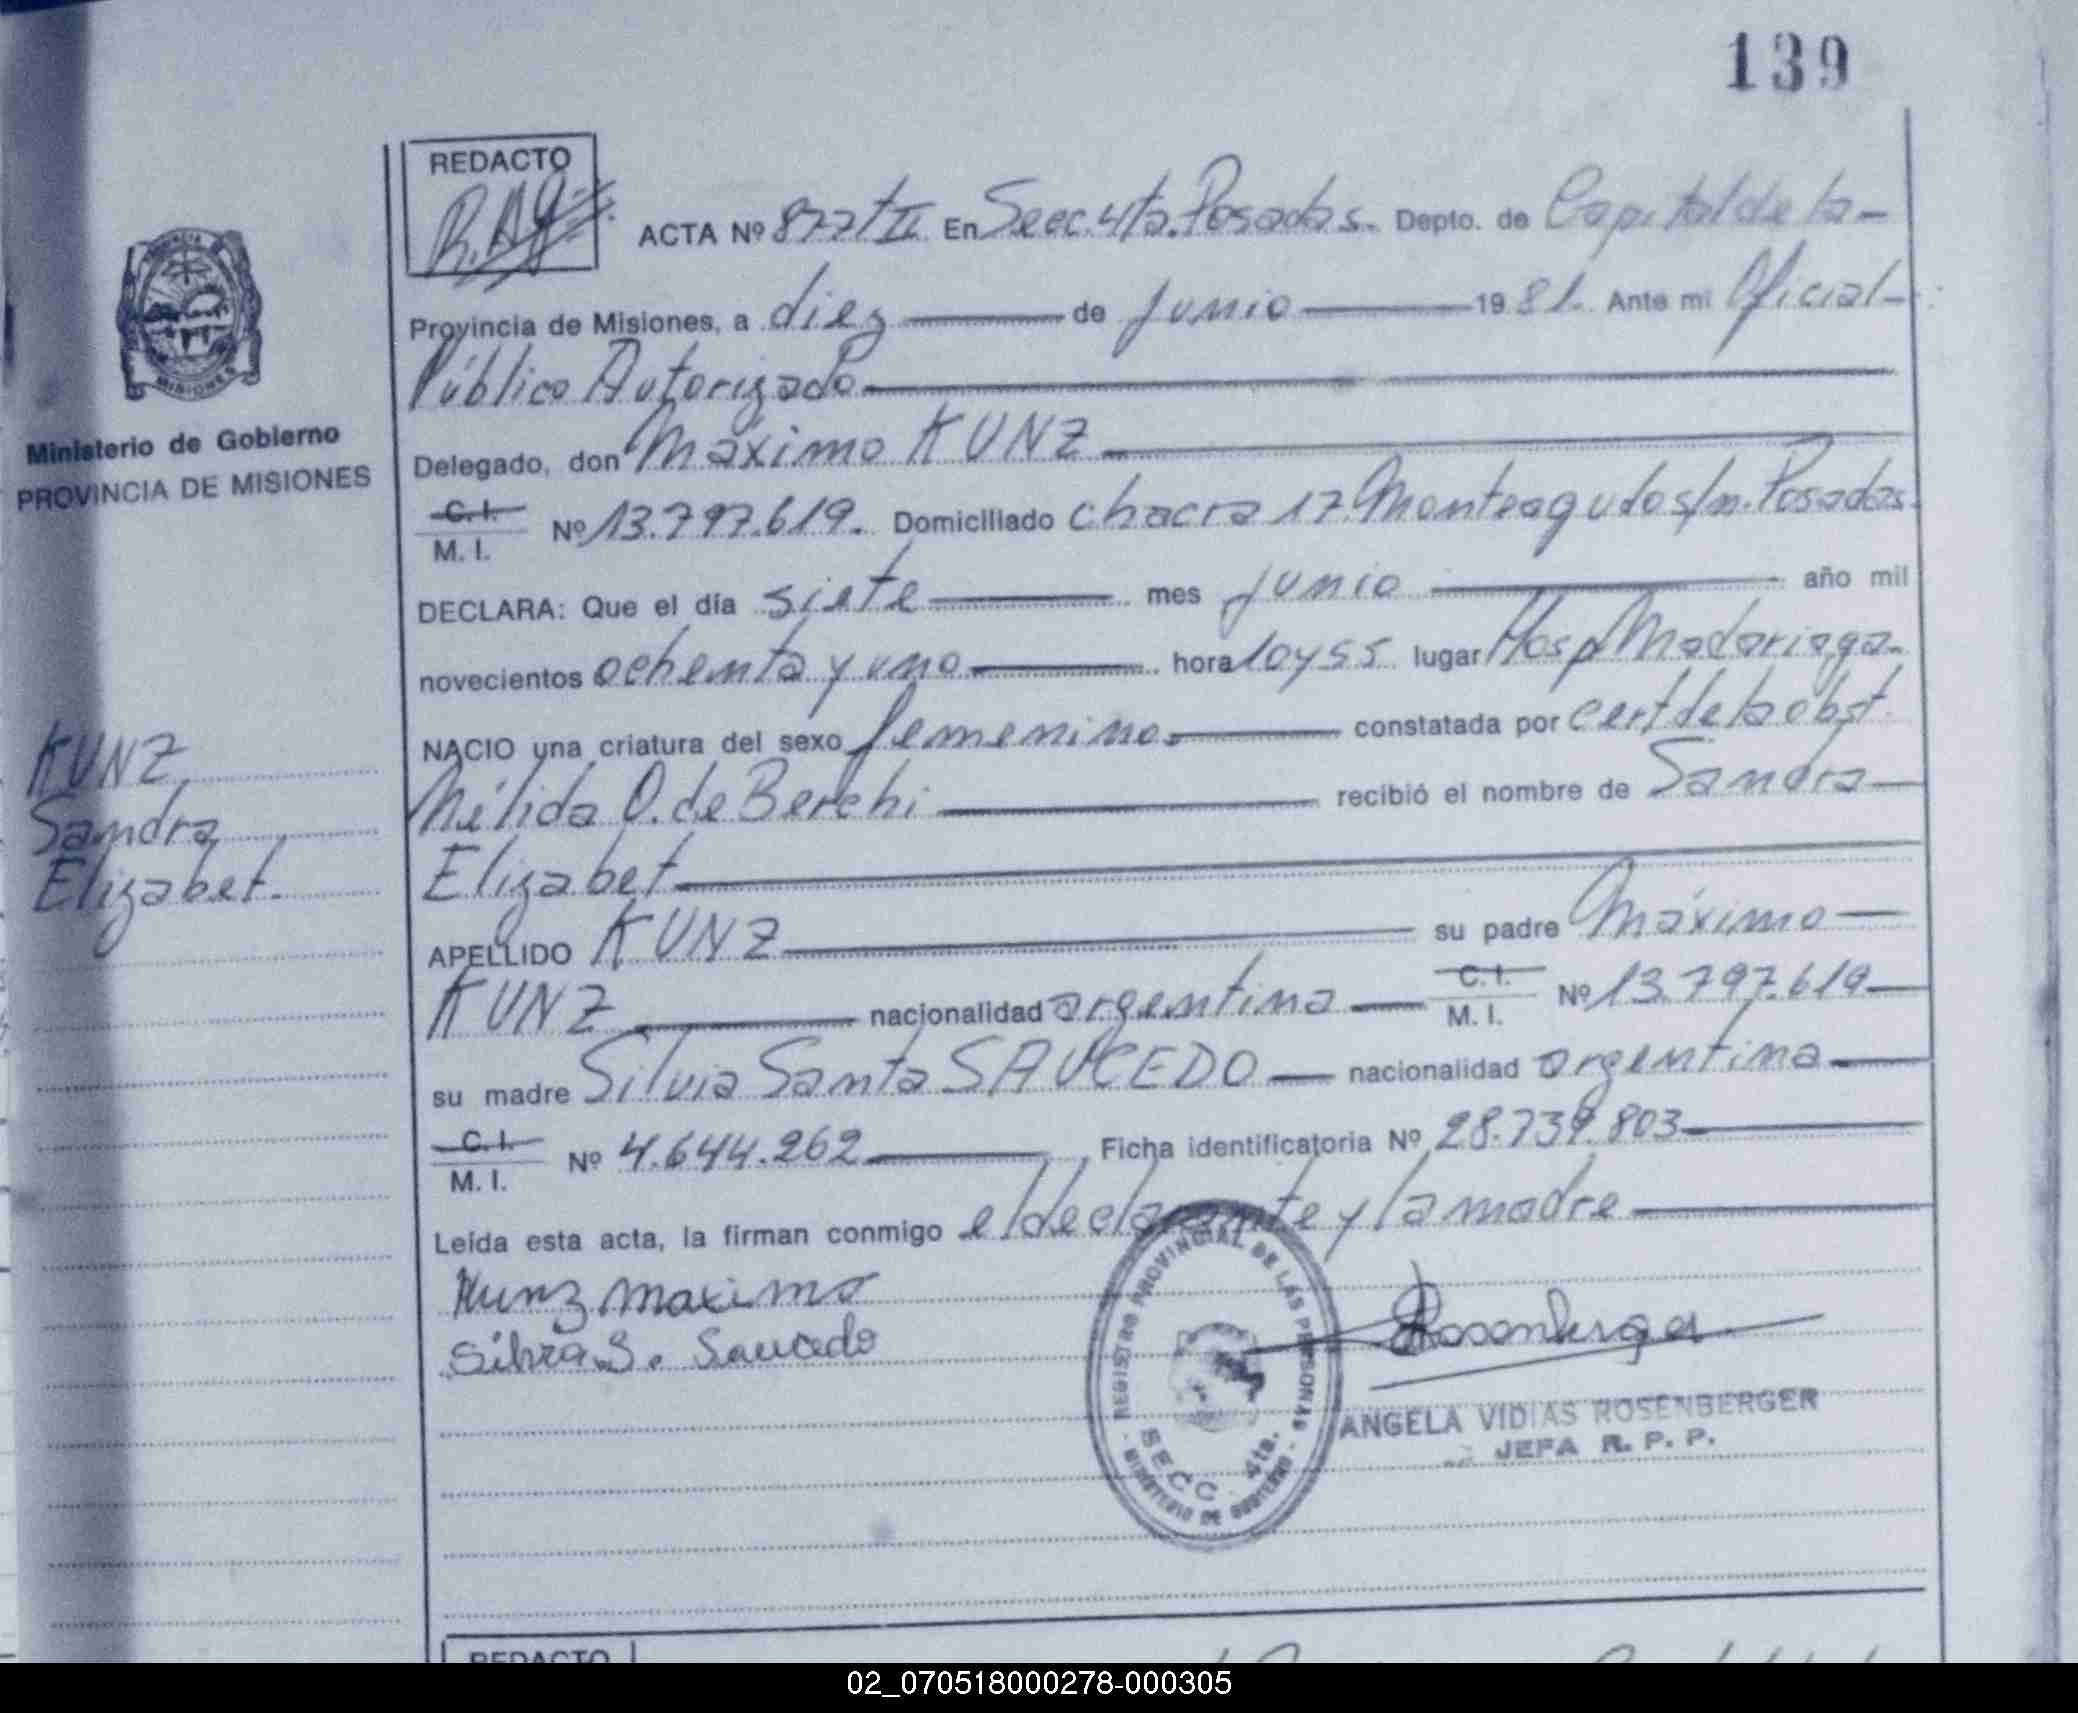 139
REDACTO
ACTA Nº 877/II En Secc. 4ta. Posadas. Depto. de Capital de la
Provincia de Misiones, a diez de junio 1981. Ante mi Oficial
Público Autorizado
Delegado, don Máximo KUNZ
C. I.
M. I. Nº 13.797.619. Domiciliado chacra 17. Monteagudo s/n. Posadas.
DECLARA: Que el día siete mes junio año mil
novecientos ochenta y uno hora 10 y 55 lugar Hosp Madariaga.
NACIO una criatura del sexo femenino. constatada por cert de la obst.
Nélida O. de Berchi recibió el nombre de Sandra
Elizabet
APELLIDO KUNZ su padre Máximo
KUNZ nacionalidad argentina C. I. M. I. Nº 13.797.619
su madre Silvia Santa SAUCEDO nacionalidad argentina
C. I.
M. I. Nº 4.644.262 Ficha identificatoria Nº 28.739.803
Leída esta acta, la firman conmigo el declarante y la madre
Kunz maximo
Silvia S. Saucedo
Rosenberger
ANGELA VIDIAS ROSENBERGER
JEFA R. P. P.
REGISTRO PROVINCIAL DE LAS PERSONAS
SECC. 4ta.
MINISTERIO DE GOBIERNO
MISIONES
Ministerio de Gobierno
PROVINCIA DE MISIONES
KUNZ
Sandra
Elizabet.
REDACTO
02_070518000278-000305